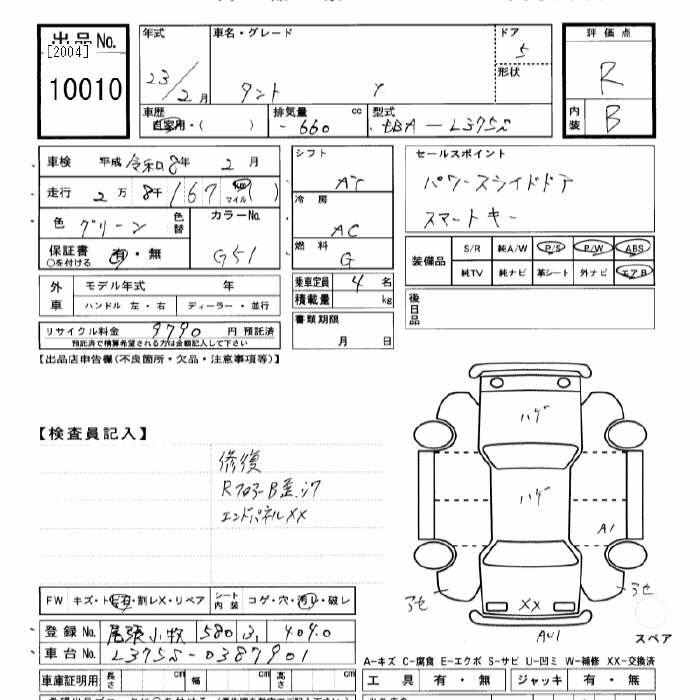 出品No.
[2004]
10010
年式
23/2月
車名・グレード
タント
ドア
5
形状
評価点
R
内装
B
車歴
自家用・( )
排気量 cc
660
型式
EBA-L375S
車検 平成 令和8年 2月
走行 2万 8千 167 マイル( )
色 グリーン 色替
カラーNo.
G51
保証書 有・無
○を付ける
外車
モデル年式 年
ハンドル 左・右
ディーラー・並行
リサイクル料金 9790 円 預託済
預託済で精算希望される方は金額記入して下さい
シフト
AT
冷房
AC
燃料
G
乗車定員 4 名
積載量 kg
書類期限
月 日
セールスポイント
パワースライドドア
スマートキー
装備品
S/R 純A/W P/S P/W ABS
純TV 純ナビ 革シート 外ナビ エアB
後日品
【出品店申告欄(不良箇所・欠品・注意事項等)】
【検査員記入】
修復
Rフロアー
エンドパネルXX
ハゲ
ハゲ
A1
XX
AU1
スペア
FW キズ・ト ・割レX・リペア
シート内装 コゲ・穴・汚レ・破レ
登録No. 尾張小牧 580 4040
車台No. L375S-0387901
車庫証明用 長さ cm 幅 cm 高さ cm
A-キズ C-腐食 E-エクボ S-サビ U-凹ミ W-補修 XX-交換済
工具 有・無 ジャッキ 有・無